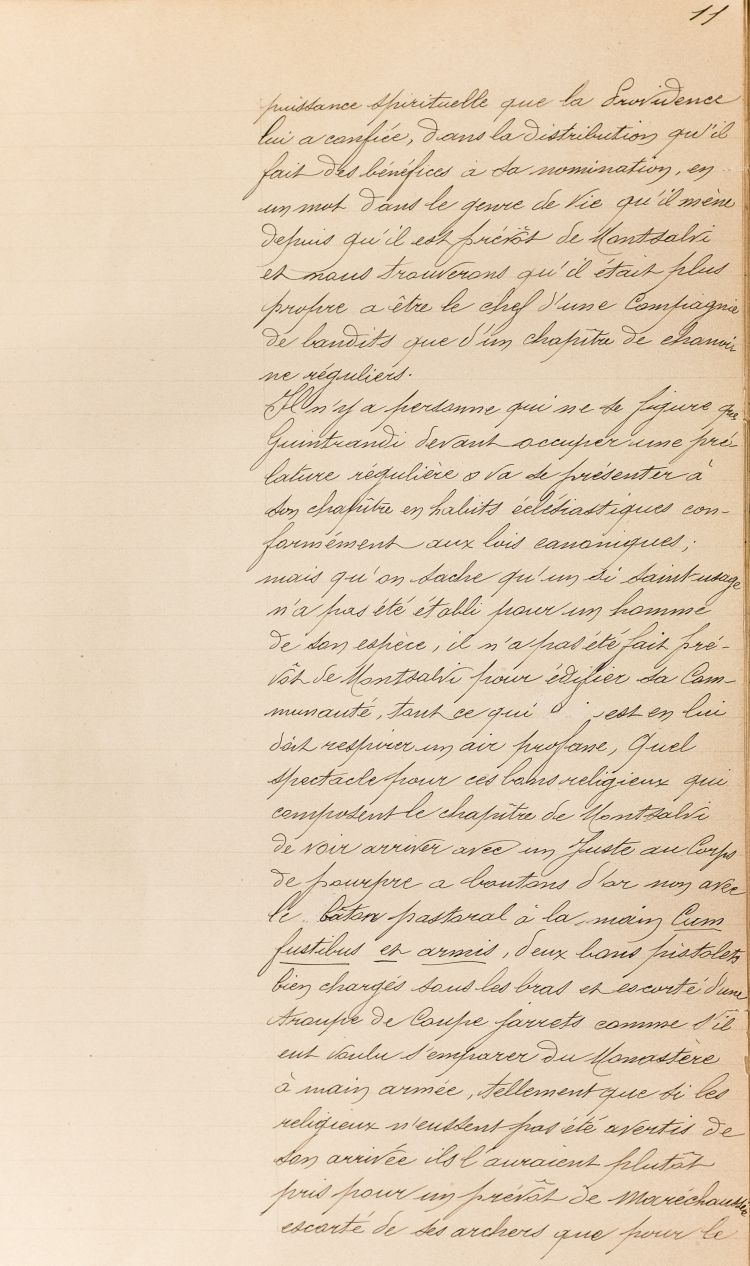 11
puissance spirituelle que la Providence
lui a confiée, dans la distribution qu'il
fait des bénéfices à sa nomination, en
un mot dans le genre de vie qu'il mène
depuis qu'il est prévôt de Montsalvi
et nous trouverons qu'il était plus
propre a être le chef d'une Compagnie
de bandits que d'un chapître de chanoi
ne réguliers.
Il n'y a personne qui ne se figure que
Guintrandi devant occuper une pré-
lature régulière va se présenter à
son chapître en habits éclésiastiques con-
formément aux lois canoniques;
mais qu'on sache qu'un si saint-usage
n'a pas été établi pour un homme
de son espèce, il n'a pas été fait pré-
vôt de Montsalvi pour édifier sa Com-
munauté, tout ce qui est en lui
doit respirer un air profane, Quel
spectacle pour ces bons religieux qui
composent le chapître de Montsalvi
de voir arriver avec un Juste au Corps
de pourpre a boutons d'or non avec
le bâton pastoral à la main Cum
fustibus et armis, deux bons pistolets
bien chargés sous les bras et escorté d'une
troupe de Coupe jarrets comme s'il
eut voulu s'emparer du Monastère
à main armée, tellement que si les
religieux n'eussent pas été avertis de
son arrivée ils l'auraient plutôt
pris pour un prévôt de Maréchaussée
escorté de ses archers que pour le